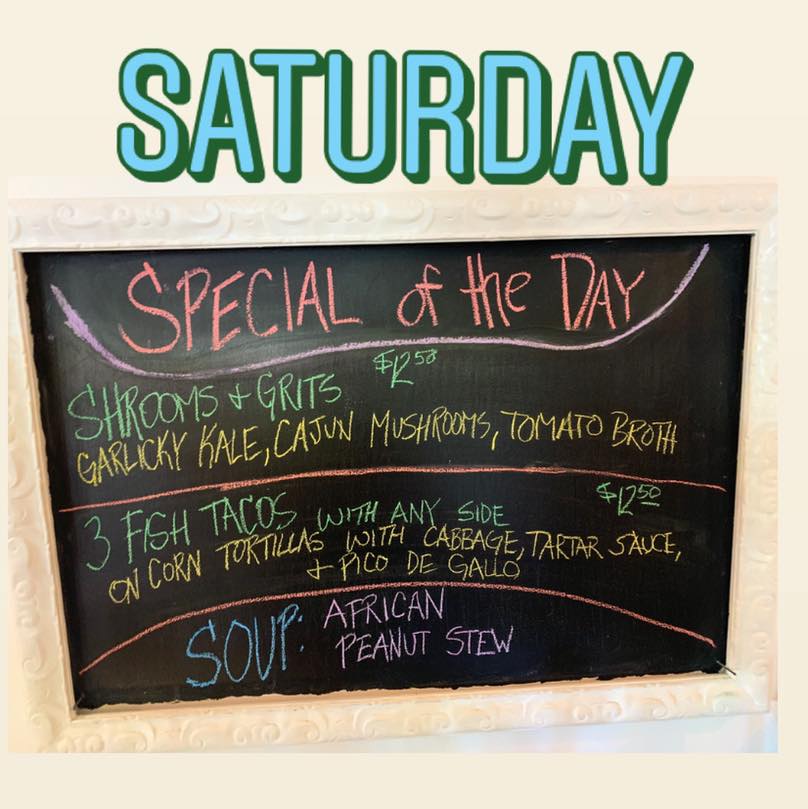 SATURDAY
SPECIAL of the DAY
SHROOMS + GRITS $12.50
GARLICKY KALE, CAJUN MUSHROOMS, TOMATO BROTH
3 FISH TACOS WITH ANY SIDE $12.50
ON CORN TORTILLAS WITH CABBAGE, TARTAR SAUCE,
+ PICO DE GALLO
SOUP: AFRICAN
PEANUT STEW